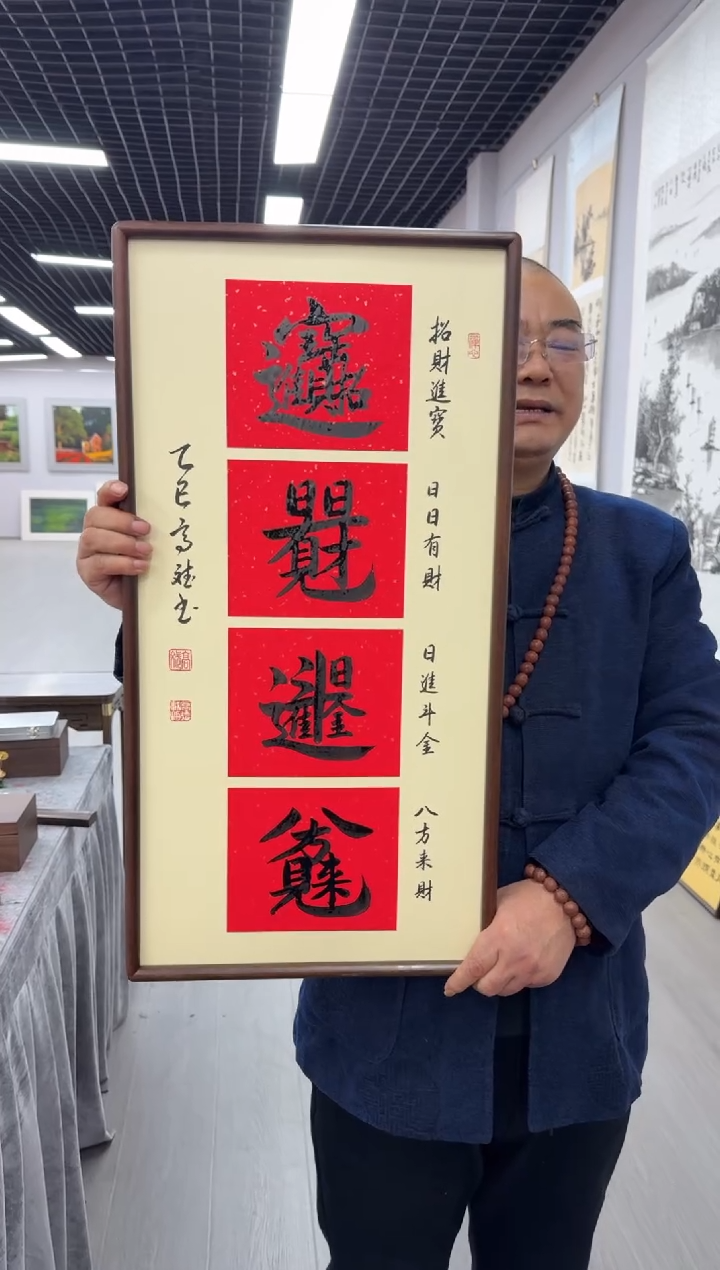 招財進寶
日日有財
日進斗金
八方来財
乙巳高斌书